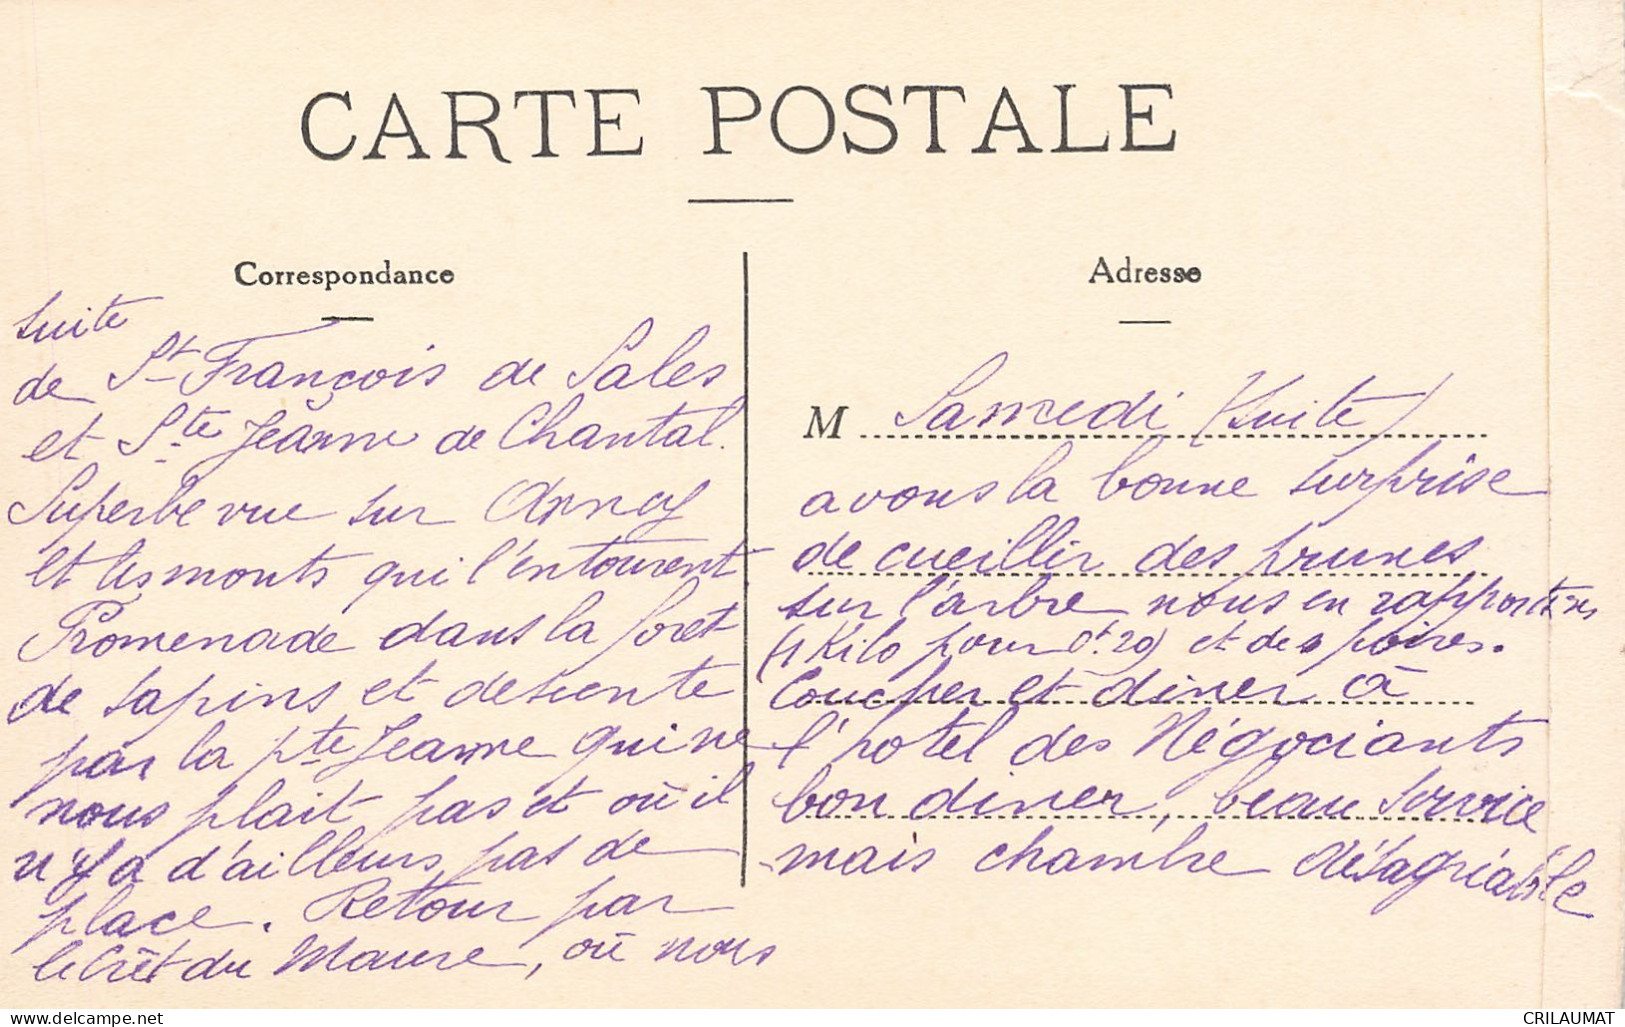 CARTE POSTALE
Correspondance
suite
de St François de Sales
et Ste Jeanne de Chantal.
Superbe vue sur Annecy
et les monts qui l'entourent
Promenade dans la forêt
de sapins et descente
par la pte Jeanne qui ne
nous plait pas et où il
n'y a d'ailleurs pas de
place. Retour par
le Crêt du Maure, où nous
Adresse
M Samedi (suite)
avons la bonne surprise
de cueillir des prunes
sur l'arbre nous en rapportons
(1 Kilo pour 0f.20) et des poires.
Coucher et diner à
l'hotel des Négociants
bon diner, beau service
mais chambre désagréable
delcampe.net
CRILAUMAT